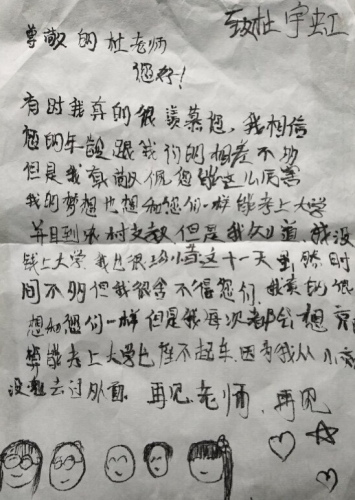 致杜宇虹
尊敬的杜老师
您好!
有时我真的很羡慕您,我相信
您的年龄跟我们的相差不多
但是我真敬佩您能这么厉害
我的梦想也想和您们一样能考上大学
并且到农村支教但是我知道,我没
钱上大学 我也很珍惜这十一天 虽然时
间不多但我很舍不得您们.我真的很
想和您们一样但是我每次都会想
能考上大学也 不起车.因为我从小
没 去过外面. 再见 老师, 再见